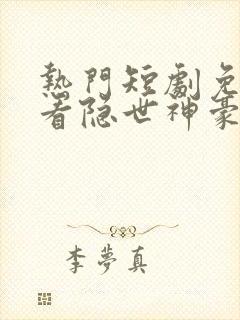 熱門短劇免
看隐世神豪
李夢真